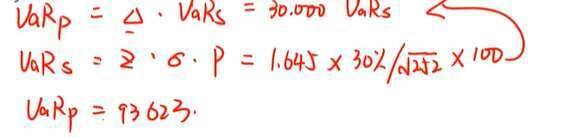 VaRp = Δ · VaRs = 30.000 VaRs
VaRs = z · σ · P = 1.645 × 30%/√252 × 100
VaRp = 93623.